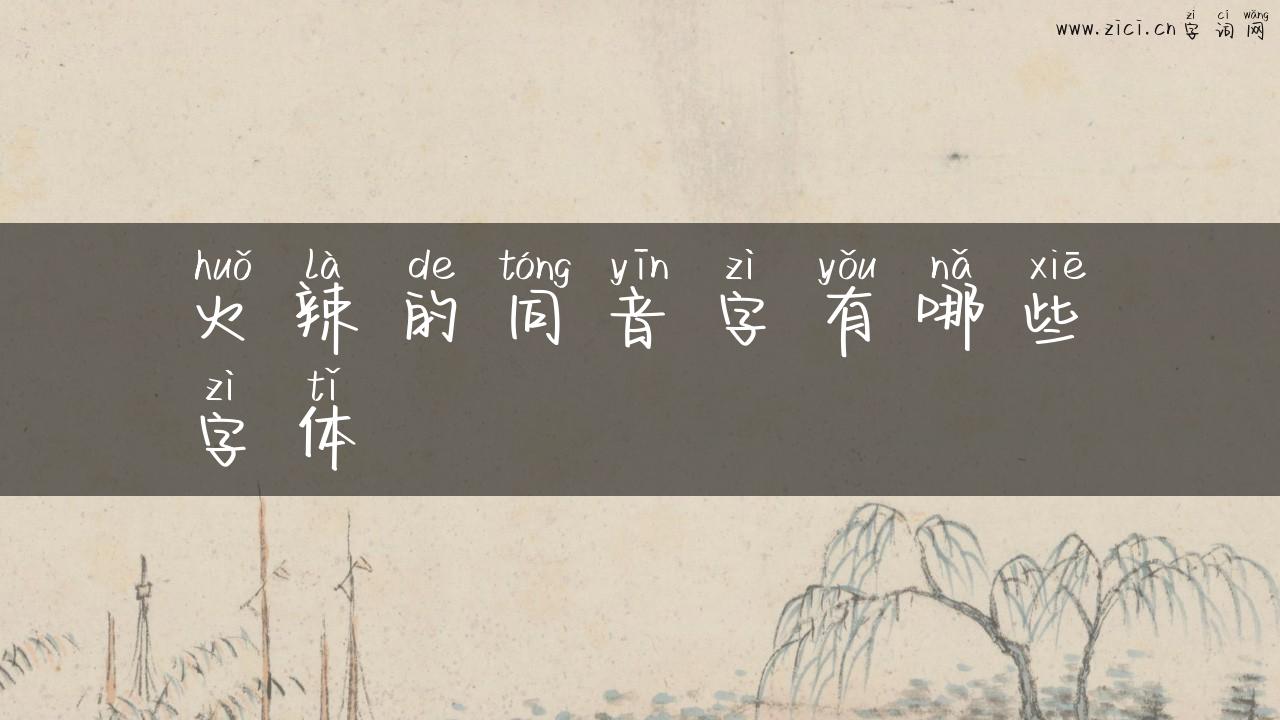 zì cí wǎng
www.zici.cn 字 词 网
huǒ là de tóng yīn zì yǒu nǎ xiē
火 辣 的 同 音 字 有 哪 些
zì tǐ
字 体